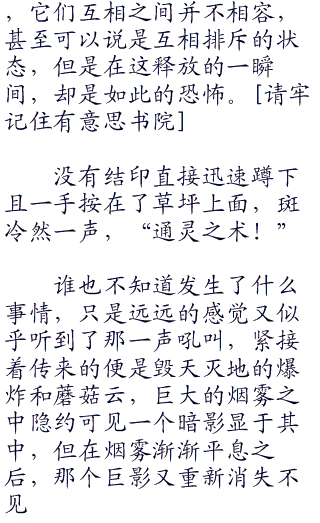 ，它们互相之间并不相容，
甚至可以说是互相排斥的状
态，但是在这释放的一瞬
间，却是如此的恐怖。[请牢
记住有意思书院]
没有结印直接迅速蹲下
且一手按在了草坪上面，斑
冷然一声，“通灵之术！”
谁也不知道发生了什么
事情，只是远远的感觉又似
乎听到了那一声吼叫，紧接
着传来的便是毁天灭地的爆
炸和蘑菇云，巨大的烟雾之
中隐约可见一个暗影显于其
中，但在烟雾渐渐平息之
后，那个巨影又重新消失不
见